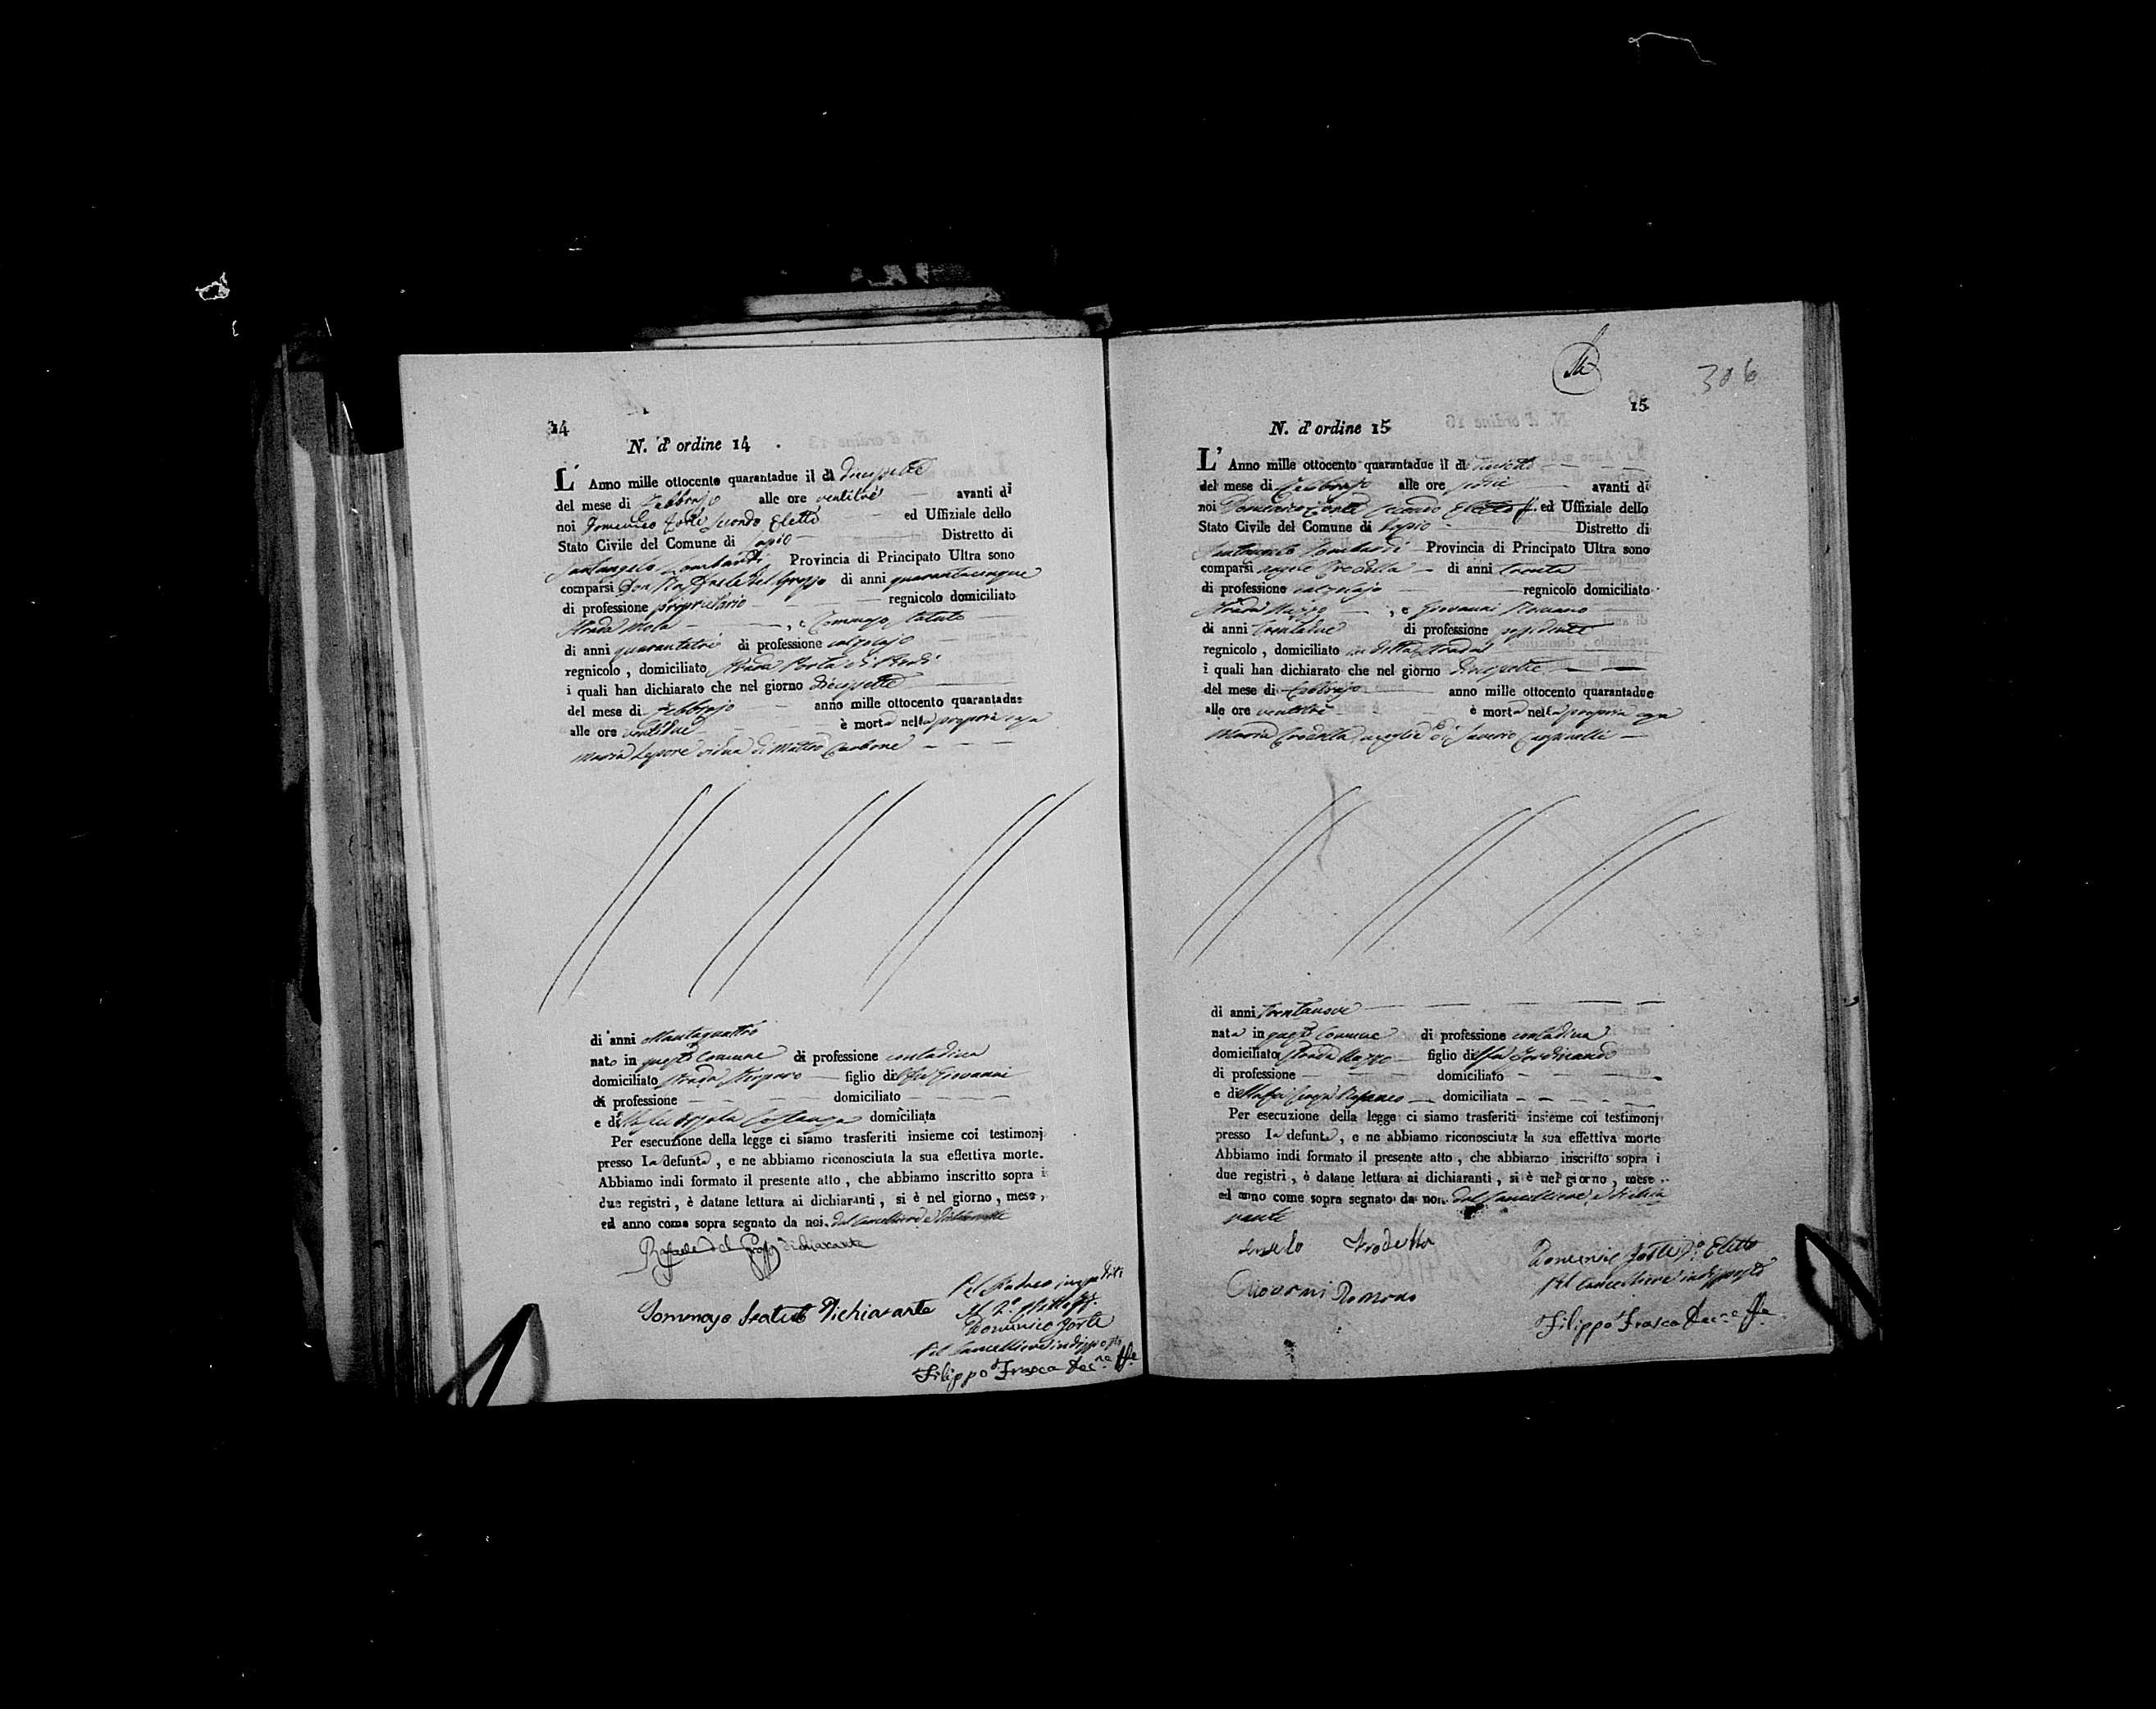 14
N. d' ordine 14
L' Anno mille ottocento quarantadue il dì diecissette
del mese di Febbrajo alle ore ventitrè avanti di
noi Domenico Forte Secondo Eletto ed Uffiziale dello
Stato Civile del Comune di Lapio Distretto di
Santangelo Lombardi Provincia di Principato Ultra sono
comparsi Don Raffaele del Grosso di anni quarantacinque
di professione proprietario regnicolo domiciliato
strada Mola , e Tommaso
di anni quarantatrè di professione calzolajo
regnicolo , domiciliato strada Porta di
i quali han dichiarato che nel giorno diecissette
del mese di Febbrajo anno mille ottocento quarantadue
alle ore ventidue è morta nella propria casa
Maria Lepore vidua di Matteo Carbone
di anni
nato in questo Comune di professione contadina
domiciliato strada figlio del fu Giovanni
di professione domiciliato
e di domiciliata
Per esecuzione della legge ci siamo trasferiti insieme coi testimonj
presso la defunta , e ne abbiamo riconosciuta la sua effettiva morte.
Abbiamo indi formato il presente atto , che abbiamo inscritto sopra i
due registri , è datane lettura ai dichiaranti , si è nel giorno , mese ,
ed anno come sopra segnato da noi, dal Cancelliere e dichiarante
Raffaele del Grosso dichiarante
Tommaso dichiarante
Pel Sindaco impedito
Il 2.º Eletto ff.
Domenico Forte
Pel Cancelliere indisposto
Filippo d'Frasca
306
15
N. d' ordine 15
L' Anno mille ottocento quarantadue il dì
del mese di Febbrajo alle ore avanti di
noi Domenico Forte secondo Eletto ff. ed Uffiziale dello
Stato Civile del Comune di Lapio Distretto di
Santangelo Lombardi Provincia di Principato Ultra sono
comparsi Angelo Trodella di anni trenta
di professione calzolajo regnicolo domiciliato
strada , e Giovanni Romano
di anni trentadue di professione
regnicolo , domiciliato in detta strada
i quali han dichiarato che nel giorno diecissette
del mese di Febbrajo anno mille ottocento quarantadue
alle ore ventitrè è morta nella propria casa
Maria Trodella moglie di Saverio
di anni trentanove
nata in questo Comune di professione contadina
domiciliata strada figlio del fu Ferdinando
di professione domiciliato
e di domiciliata
Per esecuzione della legge ci siamo trasferiti insieme coi testimonj
presso la defunta , e ne abbiamo riconosciuta la sua effettiva morte
Abbiamo indi formato il presente atto , che abbiamo inscritto sopra i
due registri , è datane lettura ai dichiaranti , si è nel giorno , mese ,
ed anno come sopra segnato da noi dal Cancelliere, e dichia
rante
Angelo Trodella
Giovanni Romano
Domenico Forte 2º Eletto
Pel Cancelliere indisposto
Filippo d'Frasca